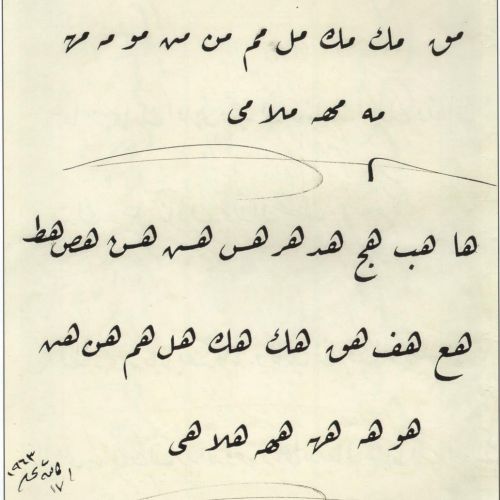 مق مك مك مل مم من من مو مه مه
مه مهه ملا مى
ها هب هج هد هر هس هس هس هص هط
هع هف هق هك هك هل هم هن هن
هو هه هه ههه هلا هى
١٩٦٣
١٧